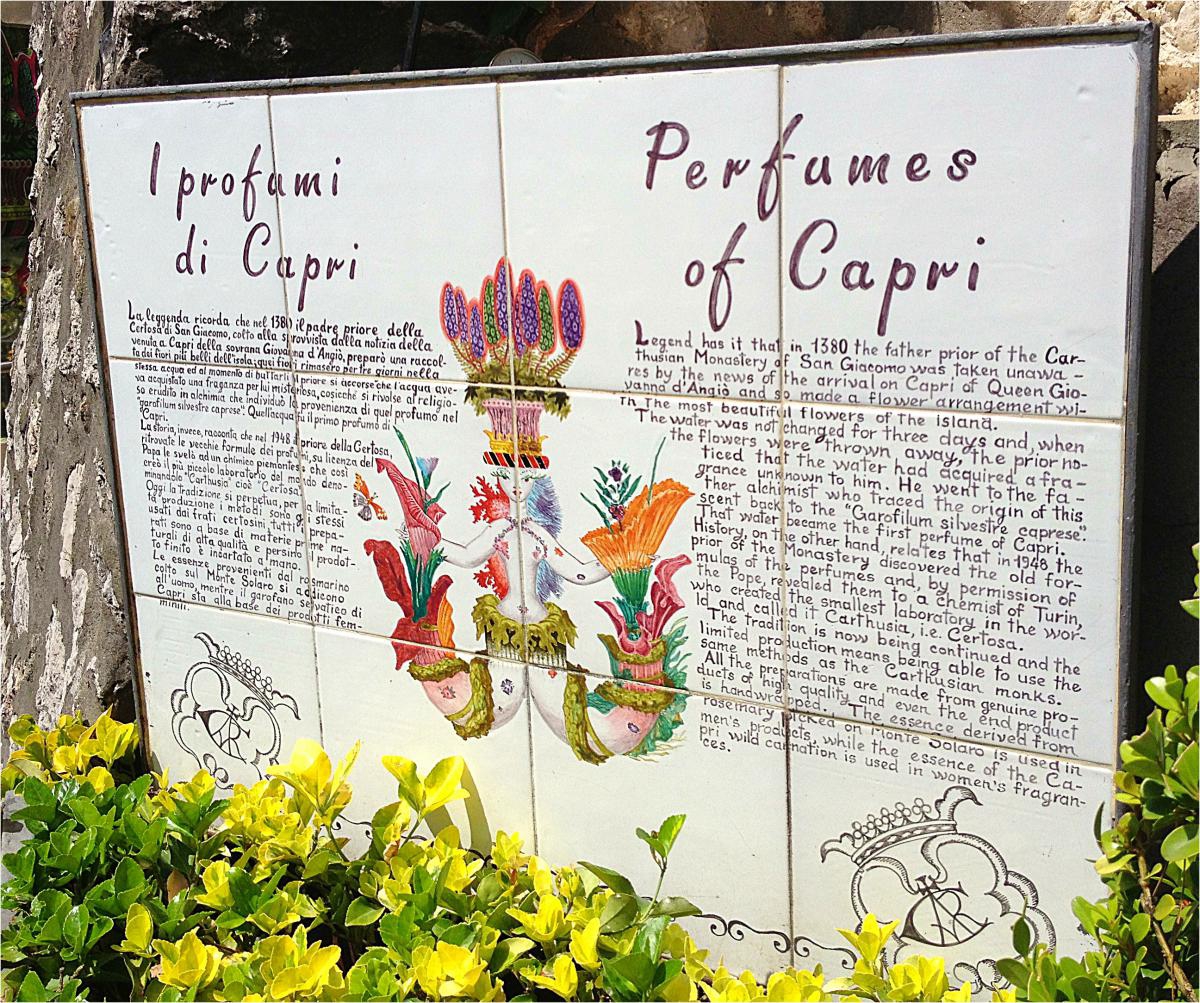 I profumi
di Capri
La leggenda ricorda che nel 1380 il padre priore della
Certosa di San Giacomo, colto alla sprovvista dalla notizia della
venuta a Capri della sovrana Giovanna d'Angiò, preparò una raccol-
ta dei fiori più belli dell'isola; quei fiori rimasero per tre giorni nella
stessa acqua ed al momento di buttarli il priore si accorse che l'acqua ave-
va acquistato una fraganza per lui misteriosa, cosicchè si rivolse al religio-
so erudito in alchimia che individuò la provenienza di quel profumo nel
"garofilum silvestre caprese". Quell'acqua fu il primo profumo di
Capri.
La storia, invece, racconta che nel 1948 il priore della Certosa,
ritrovate le vecchie formule dei profumi, su licenza del
Papa le svelò ad un chimico piemontese che così
creò il più piccolo laboratorio del mondo deno-
minandolo "Carthusia" cioè "Certosa".
Oggi la tradizione si perpetua, per la limita-
ta produzione i metodi sono gli stessi
usati dai frati certosini, tutti i prepa-
rati sono a base di materie prime na-
turali di alta qualità e persino il prodot-
to finito è incartato a mano.
Le essenze provenienti dal rosmarino
colto sul Monte Solaro si addicono
all'uomo, mentre il garofano selvatico di
Capri sta alla base dei prodotti fem-
minili.
Perfumes
of Capri
Legend has it that in 1380 the father prior of the Car-
thusian Monastery of San Giacomo was taken unawa-
res by the news of the arrival on Capri of Queen Gio-
vanna d'Angiò and so made a flower arrangement wi-
th the most beautiful flowers of the island.
The water was not changed for three days and, when
the flowers were thrown away, the prior no-
ticed that the water had acquired a fra-
grance unknown to him. He went to the fa-
ther alchemist who traced the origin of this
scent back to the "Garofilum silvestre caprese".
That water became the first perfume of Capri.
History, on the other hand, relates that in 1948 the
prior of the Monastery discovered the old for-
mulas of the perfumes and, by permission of
the Pope, revealed them to a chemist of Turin,
who created the smallest laboratory in the wor-
ld and called it Carthusia, i.e. Certosa.
The tradition is now being continued and the
limited production means being able to use the
same methods as the Carthusian monks.
All the preparations are made from genuine pro-
ducts of high quality and even the end product
is handwrapped. The essence derived from
rosemary picked on Monte Solaro is used in
men's products, while the essence of the Ca-
pri wild carnation is used in women's fragran-
ces.